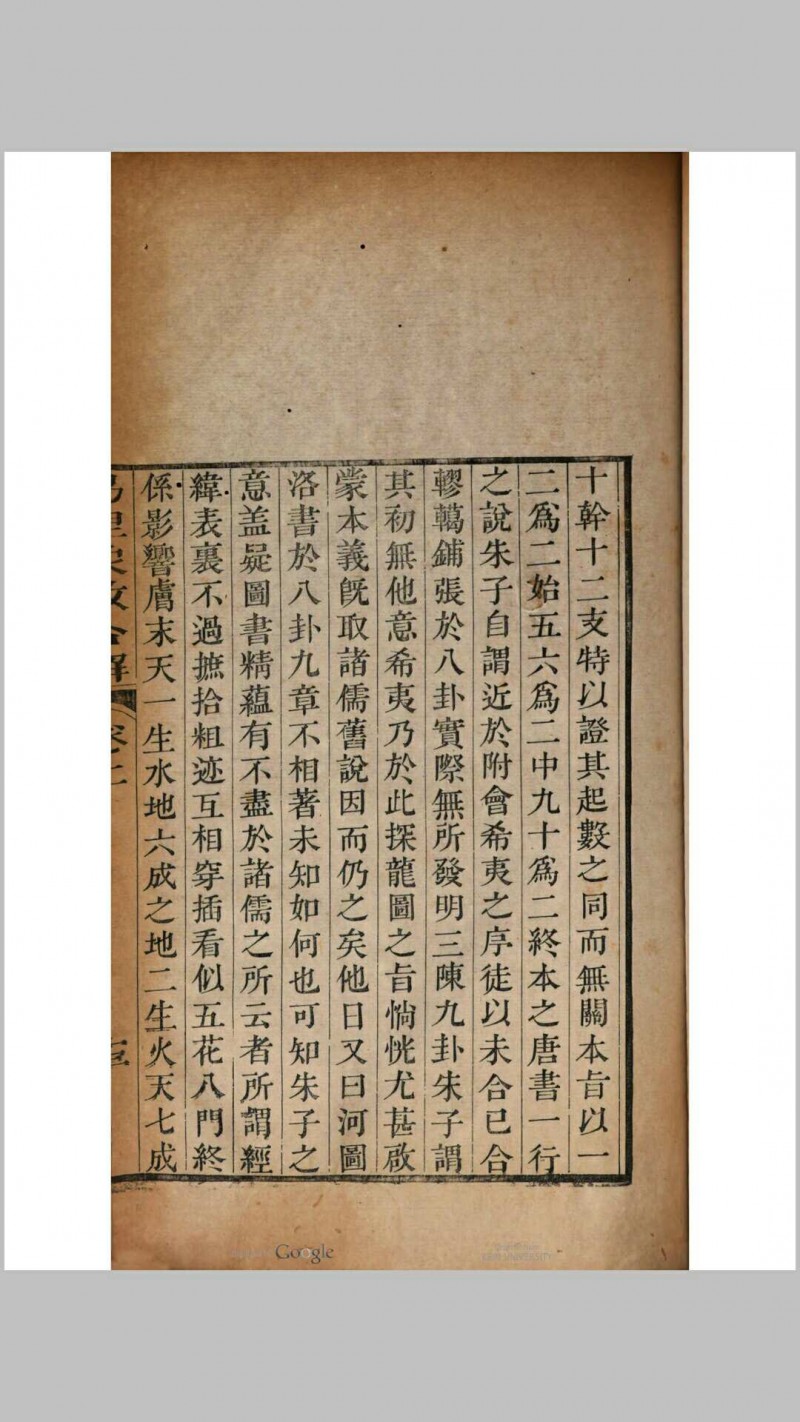 十幹十二支特以證其起數之同而無關本旨以一
二爲二始五六爲二中九十爲二終本之唐書一行
之說朱子自謂近於附會希夷之序徒以未合已合
轇轕鋪張於八卦實際無所發明三陳九卦朱子謂
其初無他意希夷乃於此探龍圖之旨惝恍尤甚啟
蒙本義旣取諸儒舊說因而仍之矣他日又曰河圖
洛書於八卦九章不相著未知如何也可知朱子之
意盖㝵圖書精蘊有不盡於諸儒之所云者所謂經
緯表裏不過摭拾粗迹互相穿插看似五花八門終
係影響膚末天一生水地六成之地二生火天七成
Google